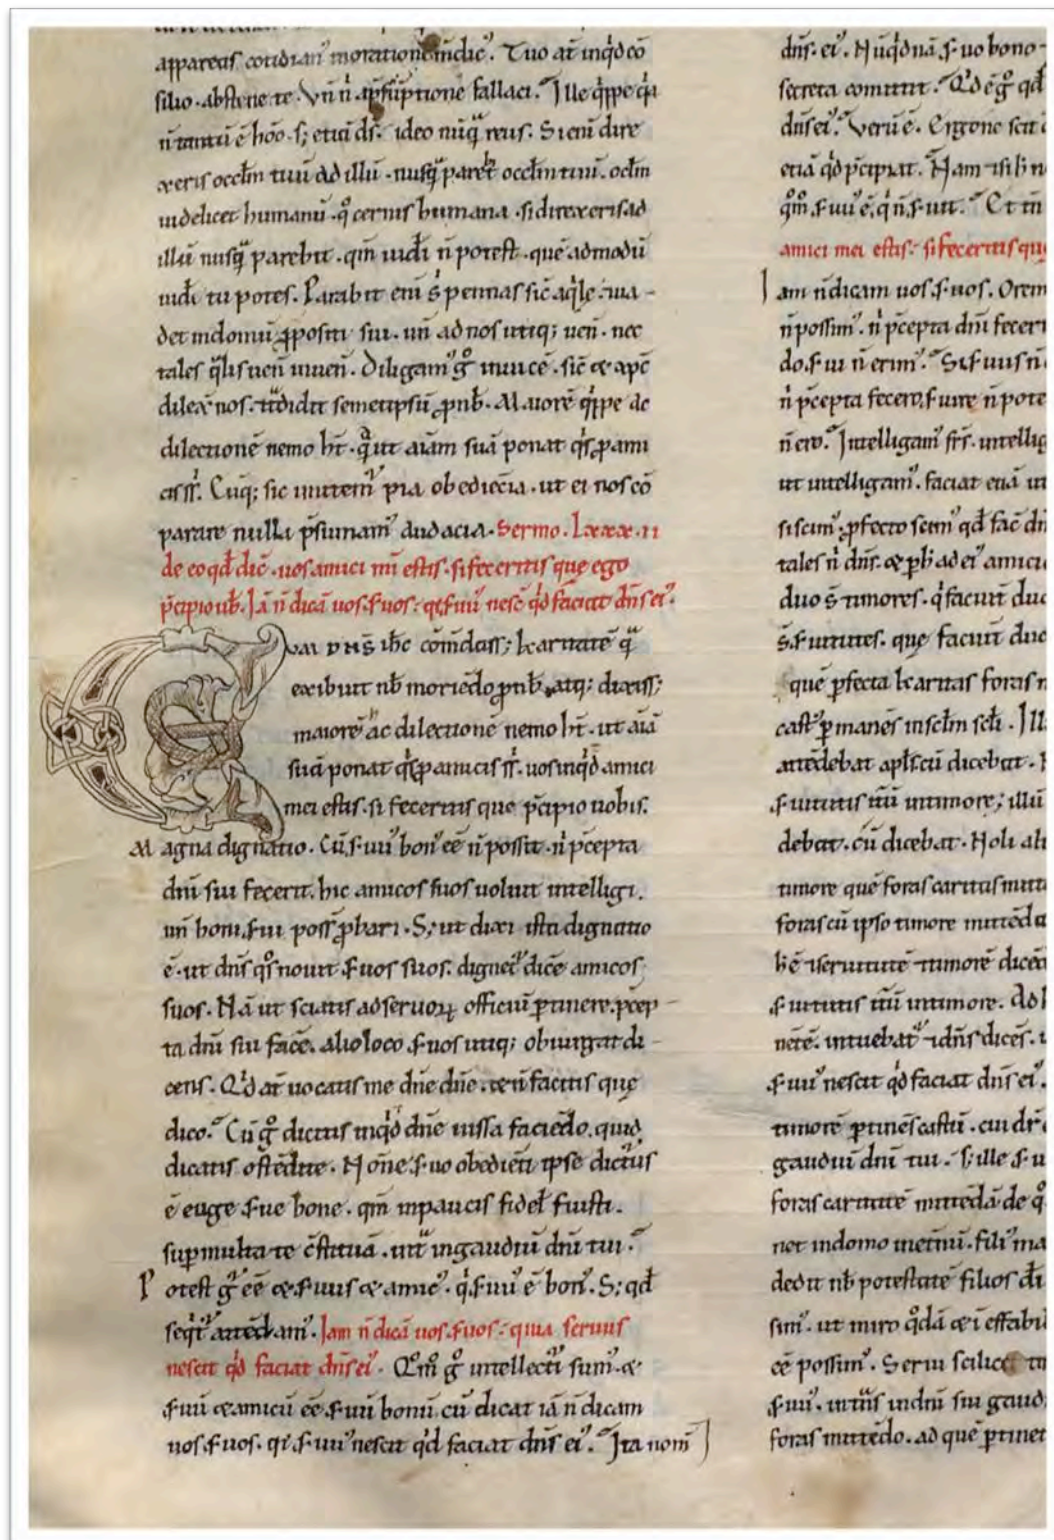 appareas cotidiani moratione indic᾽. Tuo at̄ inq̇d cō
silio. abstine te. Vn̄ n̄ a p̄sūptione fallaci. Ille q̇ppe q̇a
n̄ tantū ē hōo. s; etiā ds̄. ideo nūq̄ reus. Si eni dire
xeris occl̄m tuū ad illū. nusq̄ parebit occl̄m tuū. ocl̄m
uidelicet humanū. q̊ cernis humana. si direxeris ad
illū nusq̄ parebit. qm̄ uidi n̄ potest. quē admodū
uidi tu potes. Parabit eni s̄ pennas sic̄ aq̇le. ua-
det in domū ꝓpositi sui. un̄ ad nos utiq; uen̄. nec
tales q̄lis uen̄ inuen̄. Diligam᾽ g̊ inuicē. sic̄ & xp̄c
dilex̄ nos. & t̄didit semetipsū ꝓ nb̄. Maiorē q̇ppe ac
dilectionē nemo h̄t. q̄ ut aīam suā ponat q̇s ꝓ ami
cis s̄r. Euq; sic imitem᾽ pia obediēcia. ut ei nos cō
parare nulla p̄sumam᾽ audacia. Sermo. Lxxx.ii
de eo qd̄ dic̄. uos amici mi estis. si feceritis que ego
p̄cipio ub̄. Iā n̄ dicā uos ẜuos. q̇ ẜuu᾽ nesc̄ q̇d faciat dn̄s ei᾽.
CVM DN̄S ih̄c cōm̄dass; karitatē q̄
exibuit nb̄ moriēdo ꝓ nb̄. atq; dixiss;
maiorē hac dilectionē nemo h̄t. ut aīā
suā ponat q̇s ꝓ amicis s̄r. uos inq̇d amici
mei estis. si feceritis que p̄cipio uobis.
Magna dignatio. Cū ẜuu᾽ bon᾽ eē n̄ possit. n̄ p̄cepta
dn̄i sui fecerit. hic amicos suos uoluit intelligi.
un̄ boni ẜui poss̄ ꝓbari. S; ut dixi ista dignatio
ē. ut dn̄s q̊s nouit ẜuos suos. dignet᾽ dic̄e amicos
suos. Nā ut sciatis ad seruoꝝ officiū ꝑtinere. p̄cep-
ta dn̄i sui fac̄e. alio loco ẜuos utiq; obiurgat di-
cens. Q̇d at̄ uocatis me dn̄e dn̄e. & n̄ facitis que
dico. Cū g̊ dicitis inq̇d dn̄e iussa faciēdo. quid
dicatis ostēdite. Nōne ẜuo obediēti ipse dictur᾽
ē euge ẜue bone. qm̄ in paucis fidel᾽ fuisti.
supmulta te c̄stituā. intra in gaudiū dn̄i tui.
Potest g̊ eē & ẜuus & amic᾽. q̇ ẜuu᾽ ē bon᾽. S; qd̄
seq̇t᾽ attēdam᾽. Iam n̄ dicā uos ẜuos. quia seruus
nescit q̇d faciat dn̄s ei᾽. Q̊m̊ g̊ intellecti sum᾽ &
ẜuū & amicū eē ẜuū bonū. cū dicat iā n̄ dicam
uos ẜuos. q̇ ẜuu᾽ nescit q̇d faciat dn̄s ei᾽. Ita nom̄
dn̄s. ei᾽. Nūq̇d nā ẜuo bono
secreta comittit. Q̇d ē g̊ qd̄
dn̄s ei᾽. Verū ē. Ergone scit
etiā q̇d p̄cipiat. Nam
q̊m̊. ẜuu᾽ ē. q̇ n̄ ẜuit. Et
amici mei estis. si feceritis que
Iam n̄ dicam uos ẜuos. Orem
n̄ possim᾽. n̄ p̄cepta dn̄i fecer
do. ẜui n̄ erim᾽. Si ẜuus n̄
n̄ p̄cepta fecero. ẜuire n̄ pote
n̄ ero. Intelligam᾽ fr̄s. intellig
ut intelligam᾽. faciat etiā
si scim᾽. ꝓfecto scim᾽ qd̄ fac̄ dn̄
tales n̄ dn̄s. & p̄ h̄ ad ei᾽ amici
duo s̄ timores. q̇ faciūt duo
s̄. ẜuitutes. que faciūt duo
quē p̄fecta karitas foras
cast᾽ pmanēs in scl̄m scl̄i. Ill
attēdebat apl̄s cū dicebat.
ẜuitutis itū in timore; illū
debat. cū dicebat. Noli alt
timore quē foras caritas mitt
foras cū ipso timore mittēda
h̄ ē & seruitutē & timorē dicēs
ẜuitutis itū in timore. Ad
netē. intuebat᾽ & dn̄s dicēs.
ẜuu᾽ nescit q̇d faciat dn̄s ei᾽.
timorē ꝑtinēs castū. cui dr̄
gaudiū dn̄i tui. s; ille ẜu
foras caritate mittēdā de q̊
net in domo inetnū. fili᾽ ma
dedit nb̄ potestatē filios di
sim᾽. ut miro q̊dā & i effabi
cē possim᾽. Serui scilicet
ẜuu᾽. intrās in dn̄i sui gaud
foras mittēdo. ad quē ꝑtinet